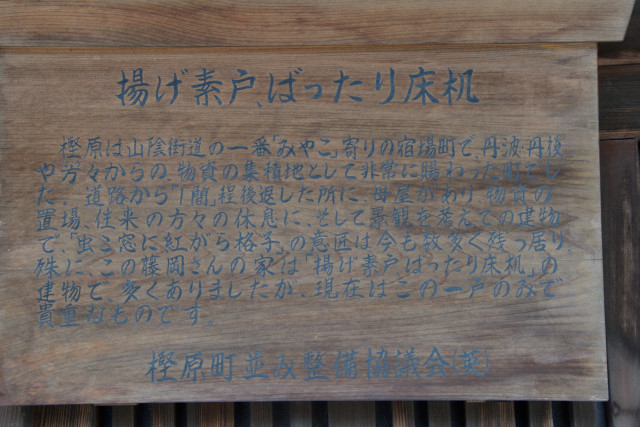 揚げ素戸、ばったり床机
樫原は山陰街道の一番「みやこ」寄りの宿場町で、丹波・丹後
や方々からの物資の集積地として非常に賑わった町でし
た。道路から"1間"程後退した所に、母屋があり物資の
置場、往来の方々の休息に、そして景観を考えての建物
で「虫こ窓に紅から格子」の意匠は今も数多く残っ居り、
殊に、この藤岡さんの家は「揚げ素戸、ばったり床机」の
建物で、多くありましたが、現在はこの一戸のみで
貴重なものです。
樫原町並み整備協議会(英)